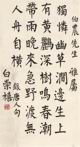 伯農先生 雅屬
獨憐幽草澗邊生上
有黃鸝深樹鳴春潮
帶雨晚來急野渡無
人舟自橫 錄唐人句
白崇禧